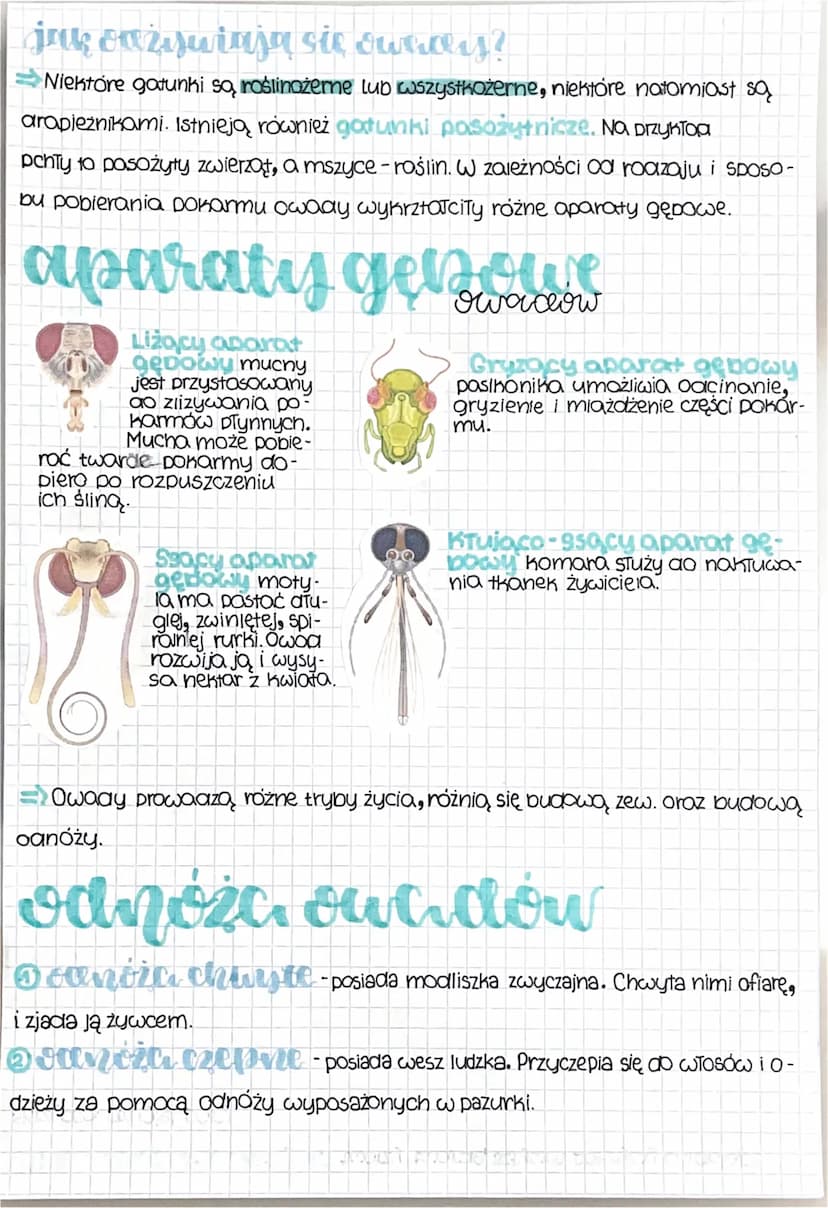 jak odżywiają się owady?
⇒ Niektóre gatunki są roślinożerne lub wszystkożerne, niektóre natomiast są
drapieżnikami. Istnieją również gatunki pasożytnicze. Na przykład
pchły to pasożyty zwierząt, a mszyce - roślin. W zależności od rodzaju i sposo-
bu pobierania pokarmu owady wykrztałciły różne aparaty gębowe.
aparaty gębowe
owadów
Liżący aparat
gębowy muchy
jest przystosowany
do zlizywania po-
karmów płynnych.
Mucha może pobie-
rać twarde pokarmy do-
piero po rozpuszczeniu
ich śliną.
Gryzący aparat gębowy
pasikonika umożliwia odcinanie,
gryzienie i miażdżenie części pokar-
mu.
Ssący aparat
gębowy moty-
la ma postać dłu-
giej, zwiniętej, spi-
ralnej rurki. Owad
rozwija ją i wysy-
sa nektar z kwiata.
Kłująco-ssący aparat gę-
bowy komara służy do nakłuwa-
nia tkanek żywiciela.
⇒ Owady prowadzą różne tryby życia, różnią się budową zew. oraz budową
odnóży.
odnóża owadów
1 odnóża chwytne - posiada modliszka zwyczajna. Chwyta nimi ofiarę,
i zjada ją żywcem.
2 odnóża czepne - posiada wesz ludzka. Przyczepia się do włosów i o-
dzieży za pomocą odnóży wyposażonych w pazurki.